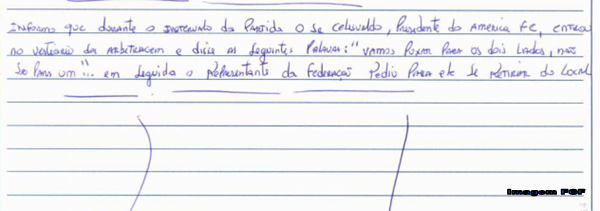 Informo que durante o intervalo da Partida o Sr Celisvaldo, Presidente do America FC, entrou
no vestiario da arbitragem e dizia as seguintes Palavras: "vamos Puxar Para os dois Lados, não
só Para um"... em seguida o representante da Federação Pediu Para ele se retirar do Local
Imagem FGF